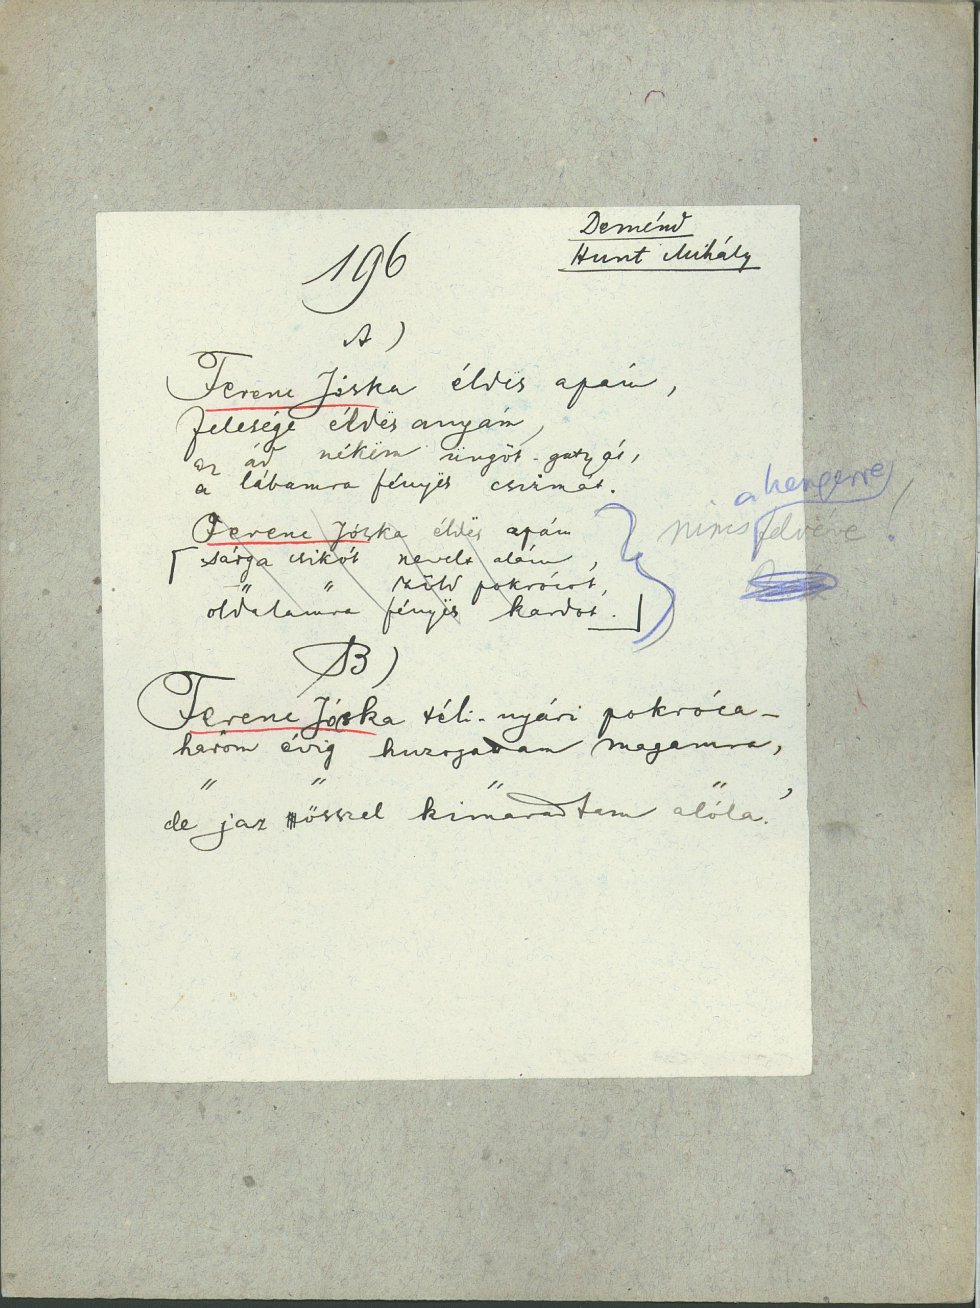 Deménd
Hunt Mihály
196
A)
Ferenc Jóska éldës apám,
felesége éldës anyám,
az ád nékëm üngöt-gatyát,
a lábamra fényës csizmát.
a hengerre
Ferenc Jóska éldës apám
nincs felvéve!
sárga csikót nevelt alám,
" " zöld pokrócot,
oldalamra fényës kardot.
B)
Ferenc Jóska téli-nyári pokróca-
három évig huzogattam magamra,
" " " "
de jaz össszel kimaradtam alóla.